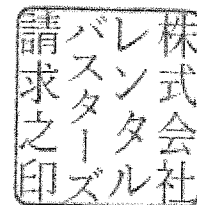 株式会社
レンタル
バスターズ
請求之印